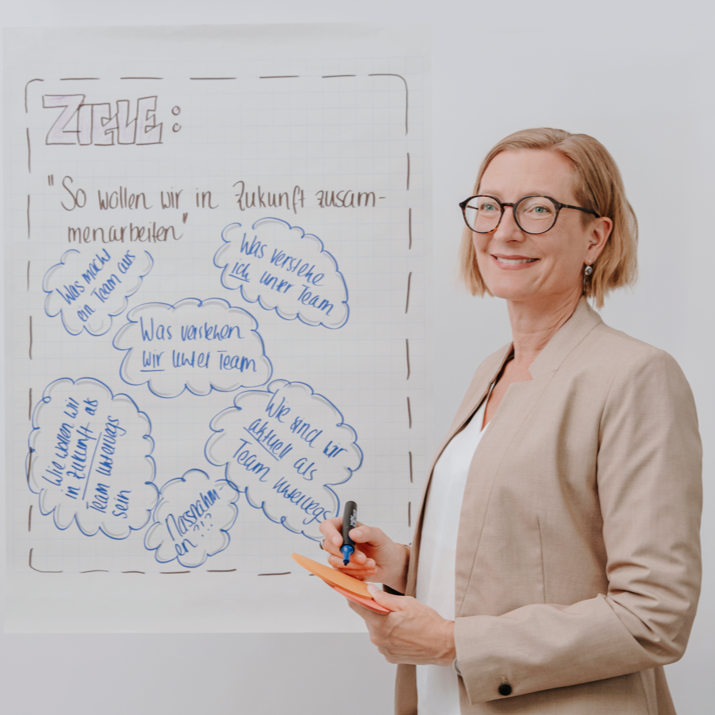 ZIELE:
"So wollen wir in Zukunft zusam-
menarbeiten"
Was macht
ein Team aus
Was verstehe
ich unter Team
Was verstehen
wir unter Team
Wie wollen wir
in Zukunft als
Team unterwegs
sein
Wie sind wir
aktuell als
Team unterwegs
Massnahm-
en?!?